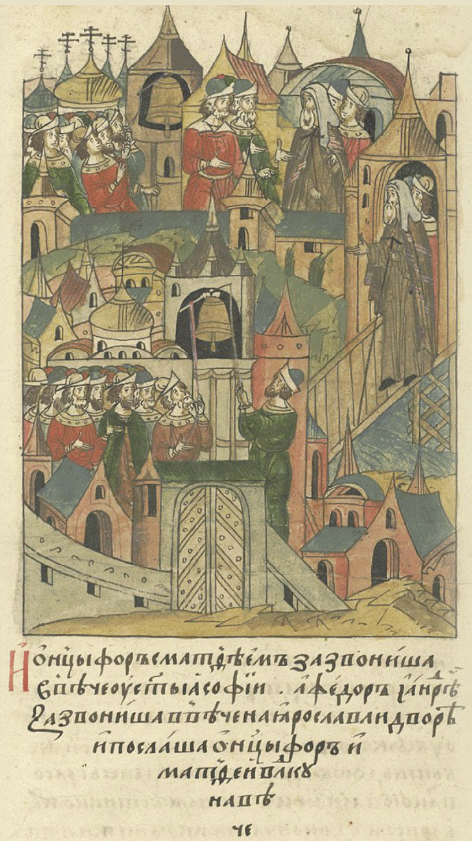 И онцыфоръ с матѳѣемъ зазвониша
в вѣче оу стыа софіи а федоръ и а҆нрѣ
зазвониша в вѣче на ꙗрославли дворѣ
и послаша онцыфоръ и
матѳеи влку
на вѣ
че